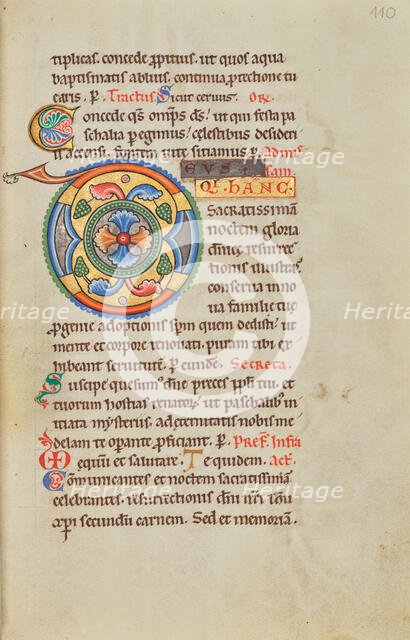 110
tiplicas. concede ꝓpitius. ut quos aqua
baptismatis abluis. continua ꝓtectione tu
earis. P. Tractus. Sicut ceruus. Or.
Concede qs omps ds. ut qui festa pa
schalia pegimus. celestibus desideri
is accensi. fontem uite sitiamus. P. Ad mis
EVS sam
Q. HANC.
Sacratissimā
noctem gloria
dnice resurre
ctionis illustras.
conserua in no
ua familie tue
ꝓgenie adoptionis spm quem dedisti. ut
mente et corpore renouati. puram tibi ex
hibeant seruitutem. P. eunde. Secreta.
Suscipe quesum dne preces ppli tui. et
tuorum hostias
initiata mysteriis. ad eternitatis nobis me
delam te operante ꝓficiant. P. Pref. Infra
equum et salutare. Te quidem. Act.
Comunicantes et noctem sacratissimā
celebrantes. resurrectionis dni nri ihu
xpi secundum carnem. Sed et memoriā.
Heritage
Heritage
Heritage
Heritage
Heritage